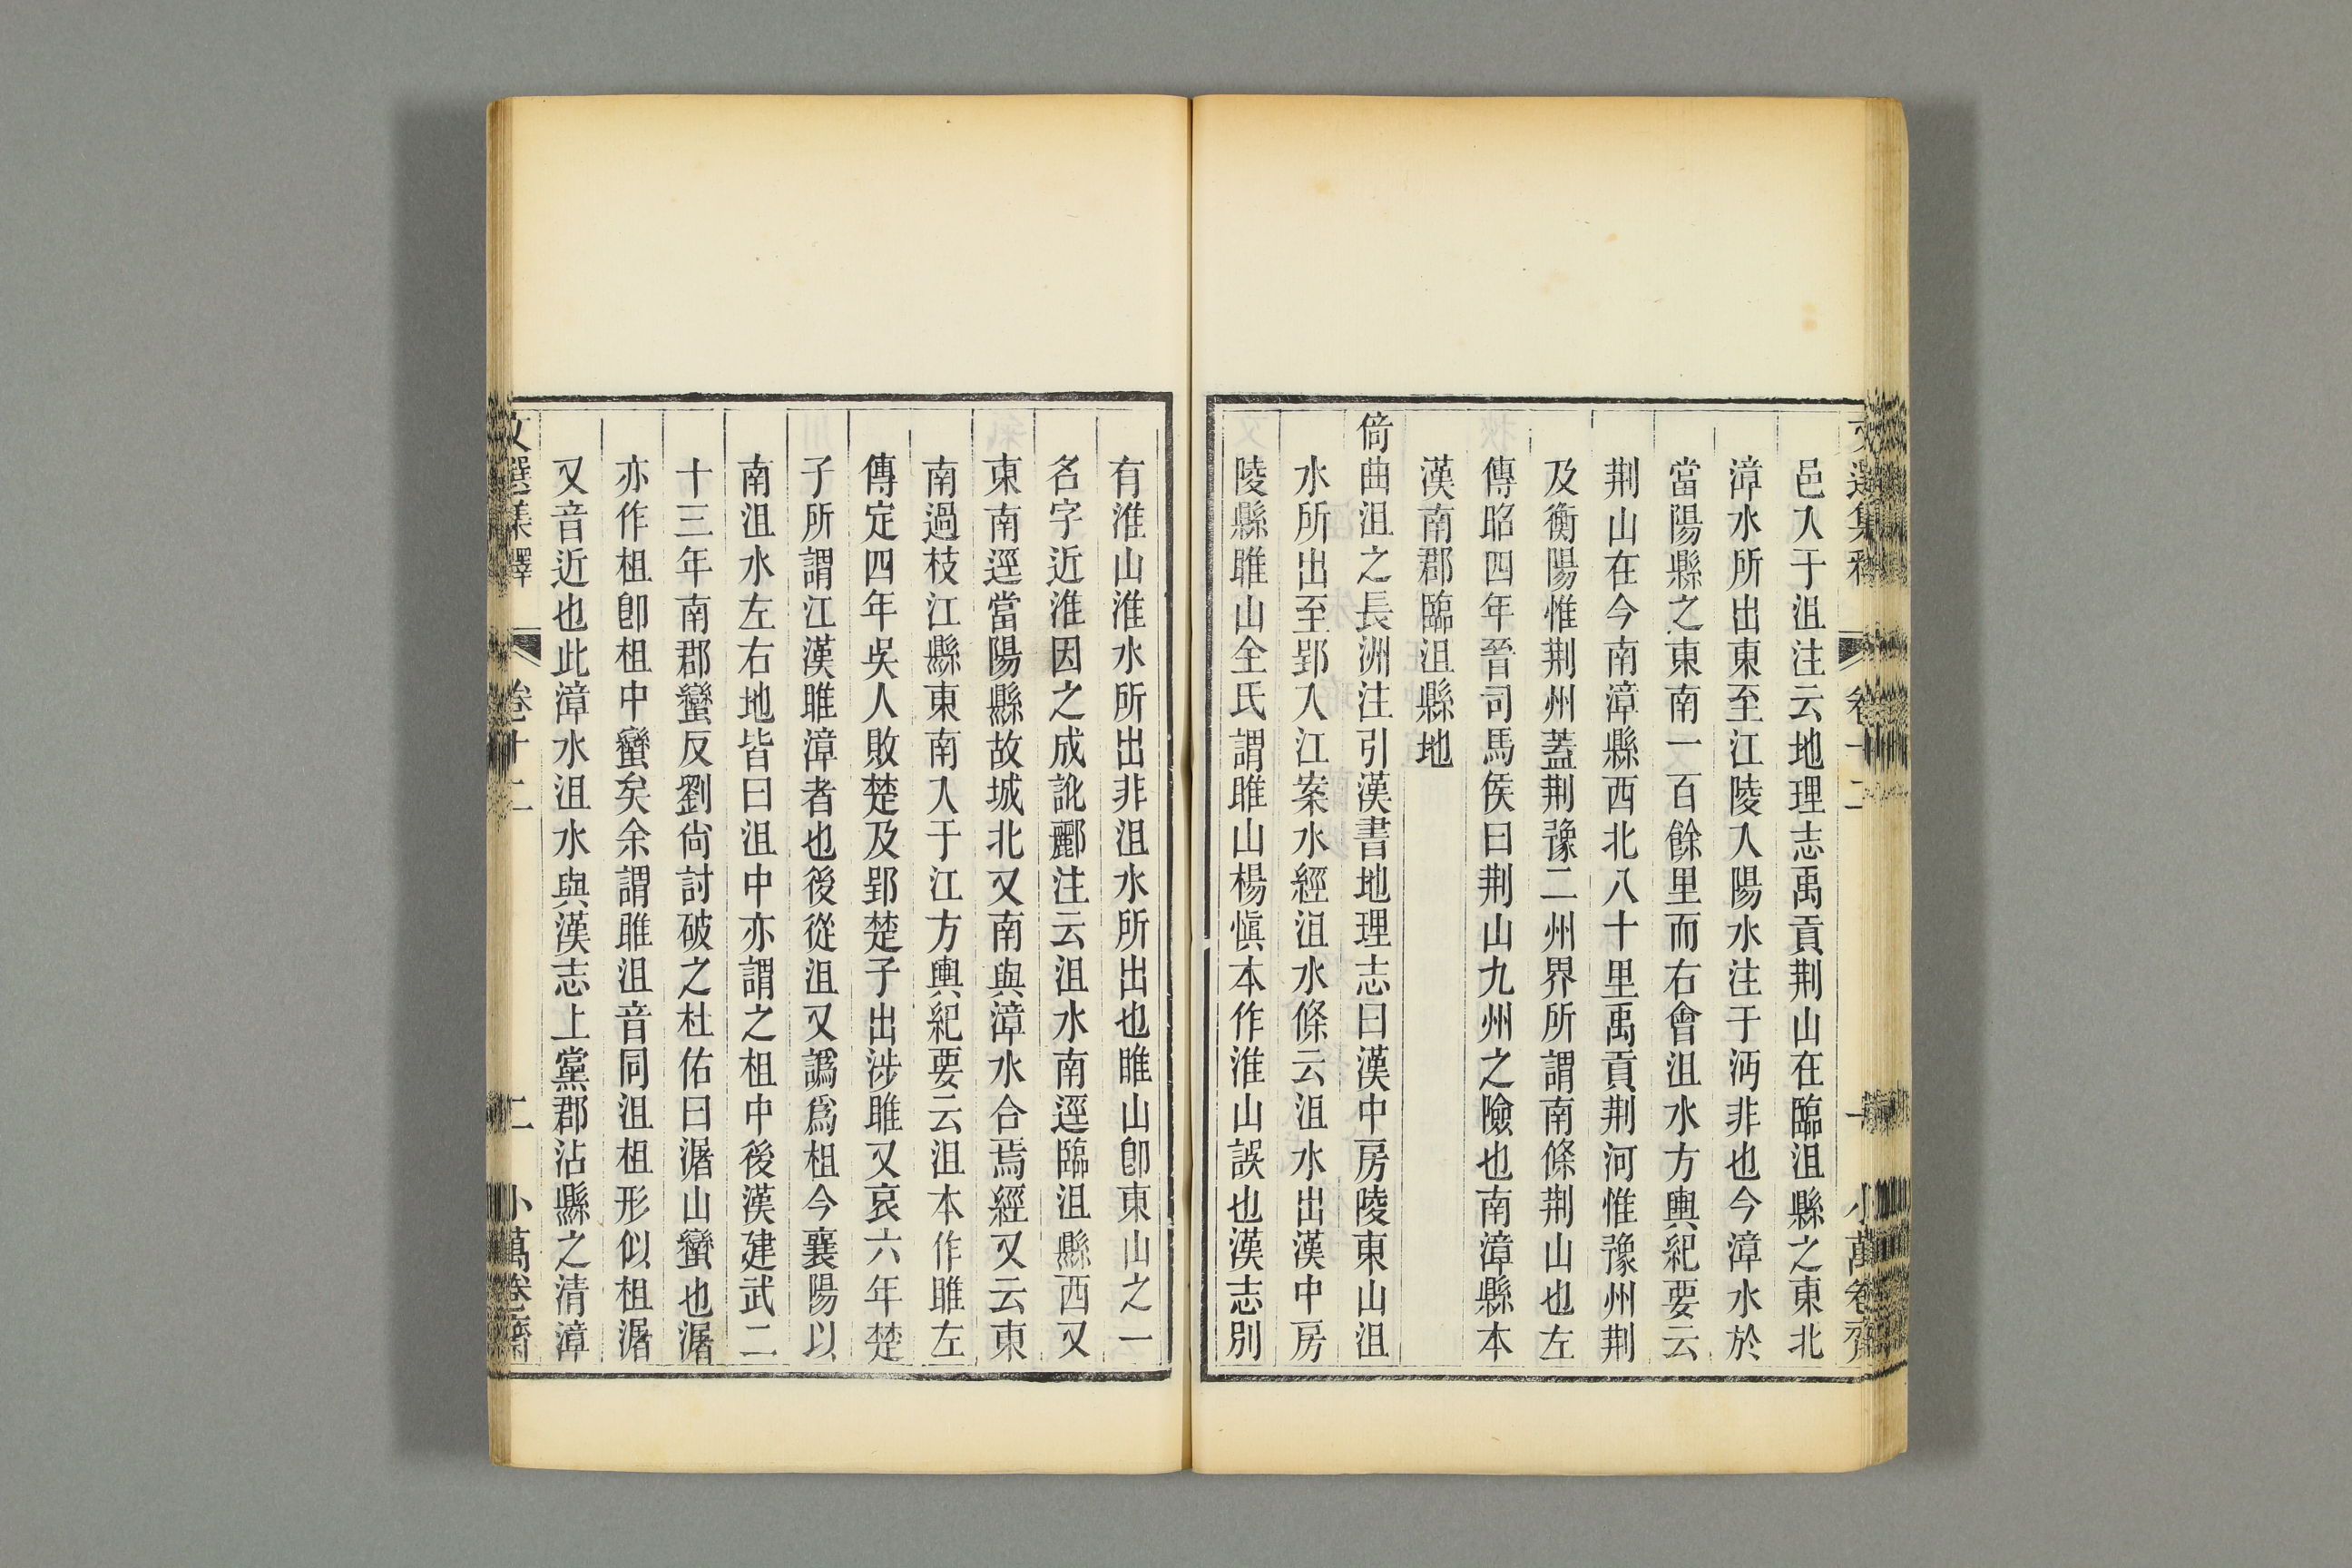 邑入于沮注云地理志禹貢荆山在臨沮縣之東北
漳水所出東至江陵入陽水注于沔非也今漳水於
當陽縣之東南一百餘里而右會沮水方輿紀要云
荆山在今南漳縣西北八十里禹貢荆河惟豫州荆
及衡陽惟荆州蓋荆豫二州界所謂南條荆山也左
傳昭四年晉司馬侯曰荆山九州之險也南漳縣本
漢南郡臨沮縣地
倚曲沮之長洲注引漢書地理志曰漢中房陵東山沮
水所出至郢入江案水經沮水條云沮水出漢中房
陵縣雎山全氏謂雎山楊愼本作淮山誤也漢志別
有淮山淮水所出非沮水所出也雎山卽東山之一
名字近淮因之成訛酈注云沮水南逕臨沮縣西又
東南逕當陽縣故城北又南與漳水合焉經又云東
南過枝江縣東南入于江方輿紀要云沮本作雎左
傳定四年吳人敗楚及郢楚子出涉雎又哀六年楚
子所謂江漢雎漳者也後從沮又譌爲柤今襄陽以
南沮水左右地皆曰沮中亦謂之柤中後漢建武二
十三年南郡蠻反劉尙討破之杜佑曰潳山蠻也潳
亦作柤卽柤中蠻矣余謂雎沮音同沮柤形似柤潳
又音近也此漳水沮水與漢志上黨郡沾縣之清漳
文選集釋 卷十二 二 小萬卷齋